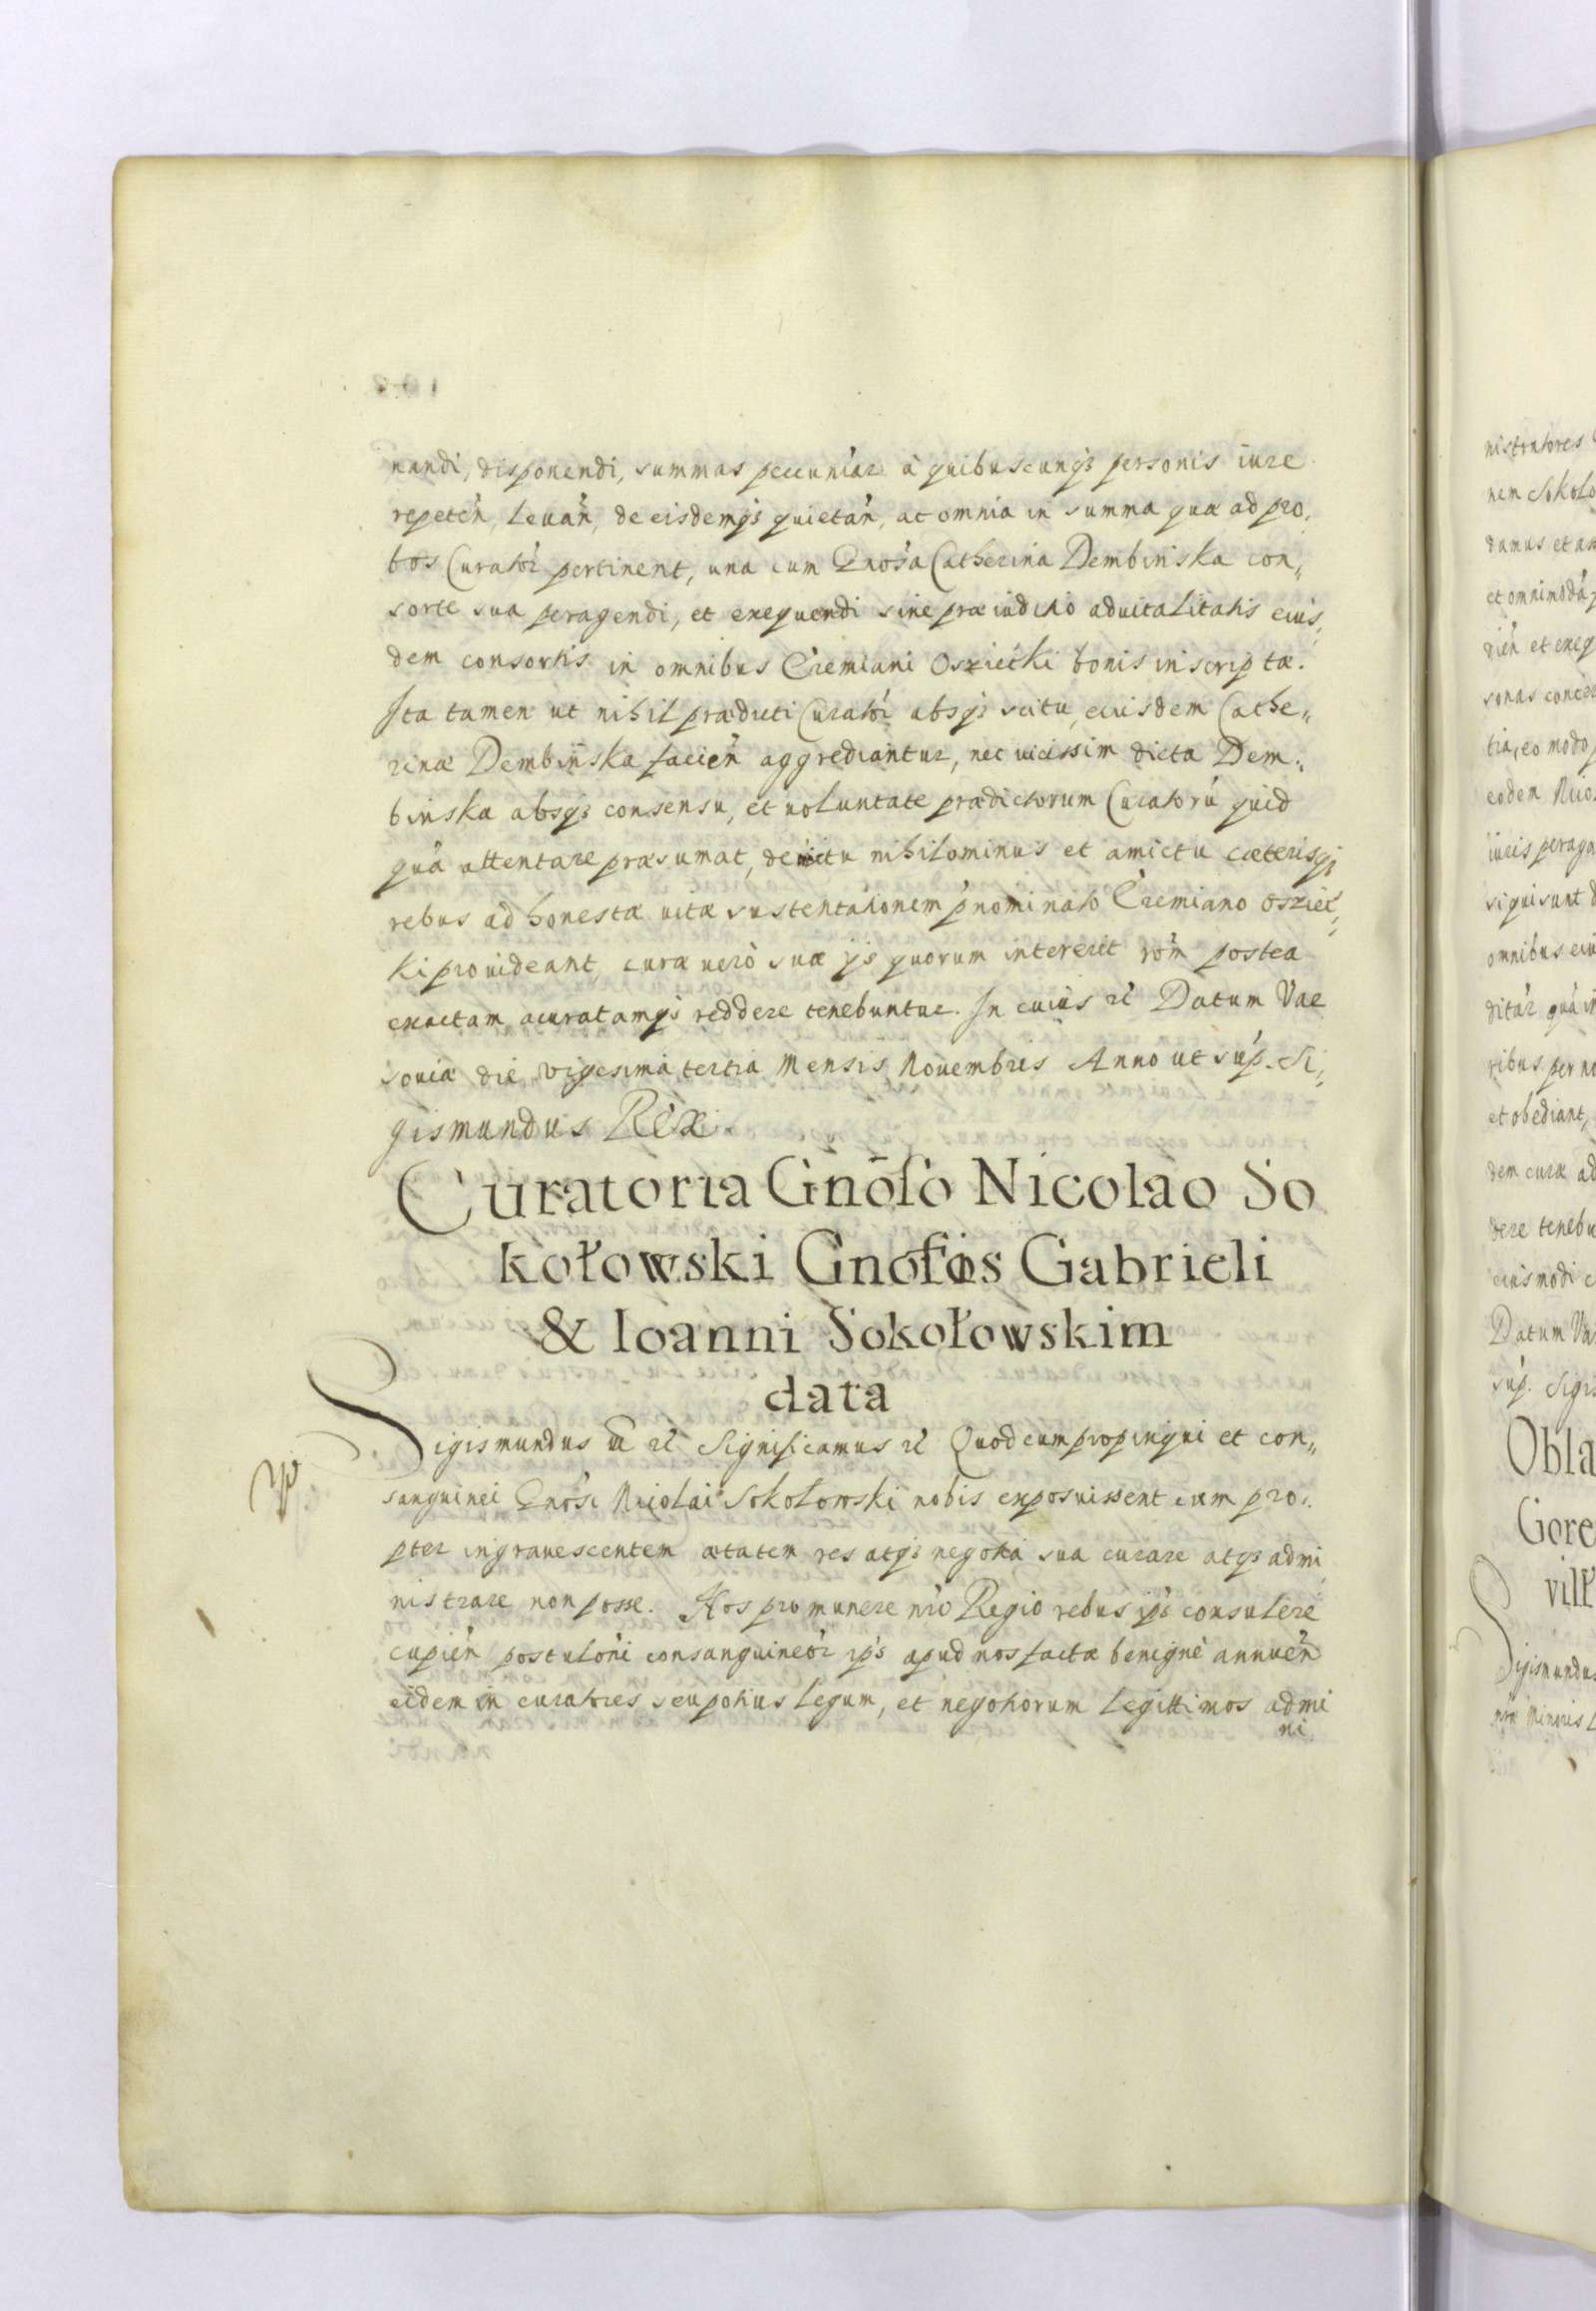 nandi, disponendi, summas pecuniar̄ à quibuscunqȝ personis iure
repeten̄, Leuan̄, de eisdemqȝ quietan̄, ac omnia in summa quæ ad pro,
bos Curator̄ pertinent, una cum Gnōsa Catherina Dembinska con„
sorte sua peragendi, et exequendi sine præiudicio aduitalitatis eius„
dem consortis in omnibus Cremiani Osziecki bonis inscriptæ.
Ita tamen ut nihil prædicti Curator̄ absqȝ scitu eiusdem Cathe„
rinæ Dembinska facien̄ aggrediantur, nec uicissim dicta Dem„
binska absqȝ consensu, et uoluntate prædictorum Curatorū quid
quā attentare præsumat, de uictu nihilominus et amictu cæterisqȝ
rebus ad honestæ uitæ sustentationem p̄nominato Cremiano Osziec„
ki prouideant curæ uerò suæ ijs quorum intererit rōm postea
exactam, acuratamqȝ reddere tenebuntur. In cuius rē Datum Var
souiæ die vigesima tertia Mensis Nouembris Anno ut sup. Si„
gismundus Rex.
Curatoria Gnōso Nicolao So
kołowski Gnōsios Gabrieli
& Ioanni Sokołowskim
data
Sigismundus rē Significamus rē Quod cum propinqui et con„
sanguinei Gnōsi Nicolai Sokołowski nobis exposuissent eum pro„
pter ingrauescentem ætatem res atqȝ negotia sua curare atqȝ admi
nistrare non posse. Nos pro munere nrō Regio rebus ip̄s consulere
cupien̄ postulōni consanguineor̄ ip̄s apud nos factæ benignè annuen̄
eidem in curatores seu potius Legum, et negotiorum Legittimos admi
ni